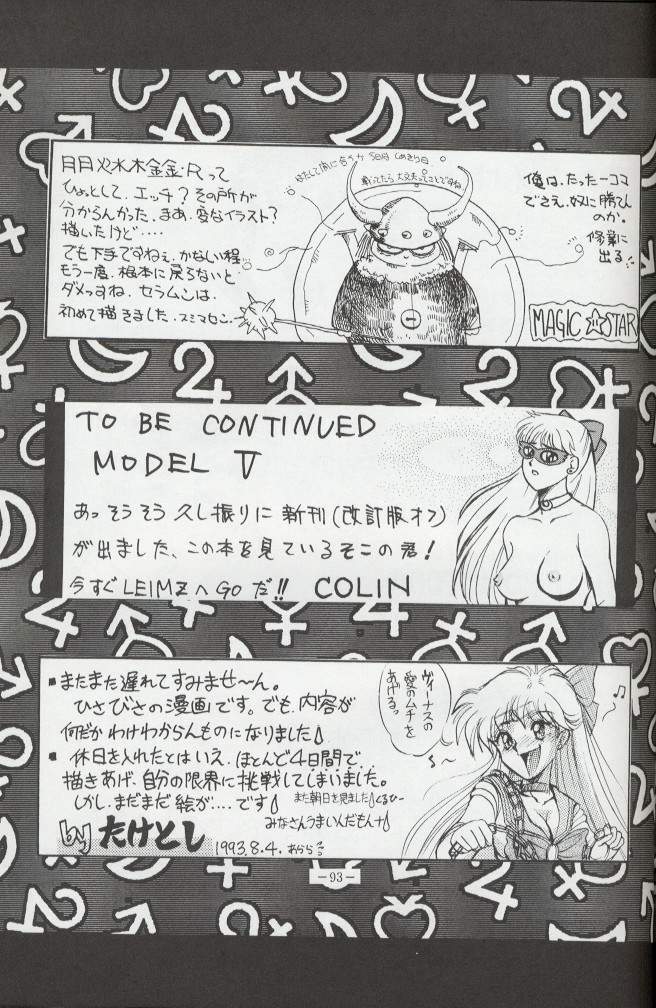 月月火水木金金・Rって
ひょっとして、エッチ？その所が
分からんかった、まあ、変なイラスト？
描いたけど‥‥
でも下手ですねぇ、かなしい程
もう一度、根本に戻らないと
ダメっすね、セラムンは
初めて描きました、スミマセン、
俺は、たった一コマ
でさえ、奴に勝てん
のか。
修業に
出る
MAGIC STAR
TO BE CONTINUED
MODEL V
あっ そうそう 久し振りに 新刊(改訂版オフ)
が出ました、この本を見ているそこの君!
今すぐ LEIMZ へ GO だ!! COLIN
■またまた遅れてすみませ〜ん。
ひさびさの漫画です。でも、内容が
何だか わけわからんものになりました♪
■ 休日を入れたとはいえ、ほとんど4日間で、
描きあげ、自分の限界に挑戦してしまいました。
しかし、まだまだ絵が‥‥です♪
また朝日を見ました♪
みなさんうまいんだもんナ
by たけとし 1993.8.4.
ヴィーナスの
愛のムチを
あげるっ
-93-